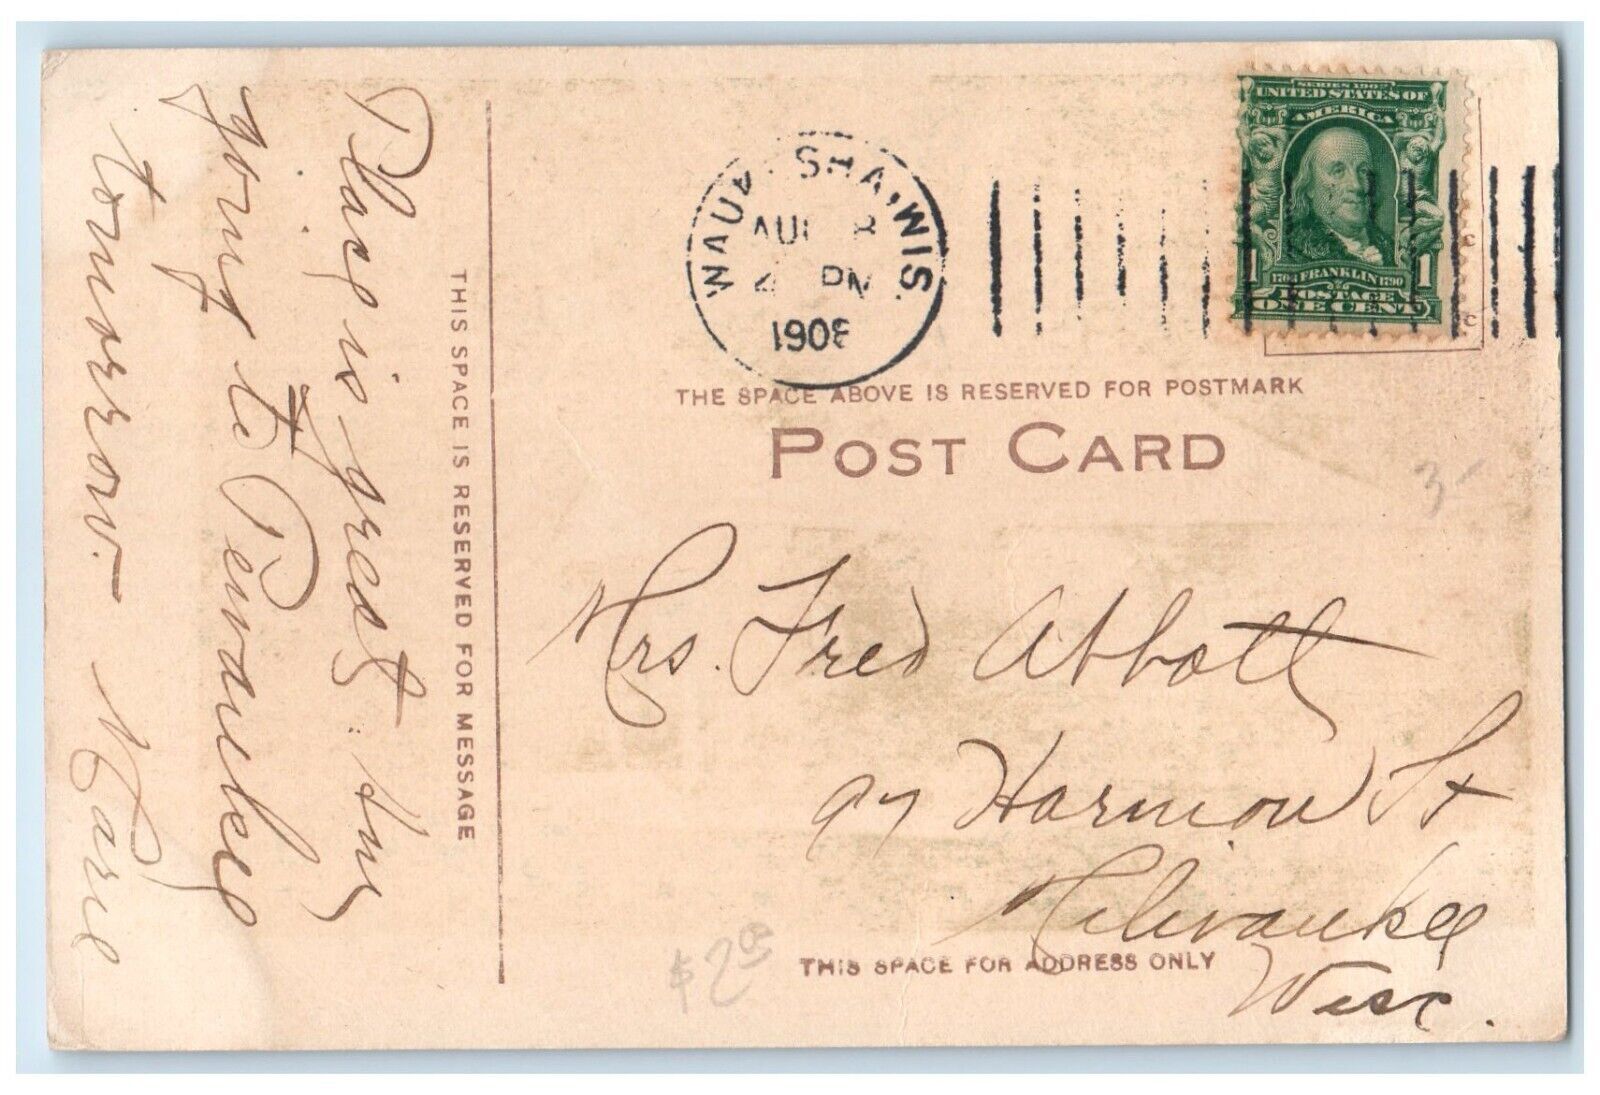 Place is great. Am
going to Pewaukee
tomorrow. Marie
THIS SPACE IS RESERVED FOR MESSAGE
WAUKESHA, WIS.
AUG 8
4 PM
1908
SERIES 1902
UNITED STATES OF
AMERICA
1706 FRANKLIN 1790
POSTAGE
1 ONE CENT 1
THE SPACE ABOVE IS RESERVED FOR POSTMARK
POST CARD
3-
Mrs. Fred Abbott
97 Harmon St
Milwaukee
Wisc.
$2.00
THIS SPACE FOR ADDRESS ONLY